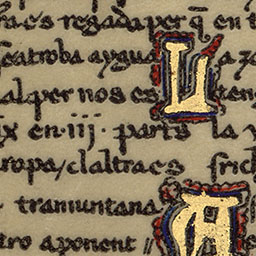 ra es regada per q̄ en t
se atroba aygua L a za
al per nos es
ix en · iij · parts la y
ropa / e laltra es
tramuntana A
tro a ponent //